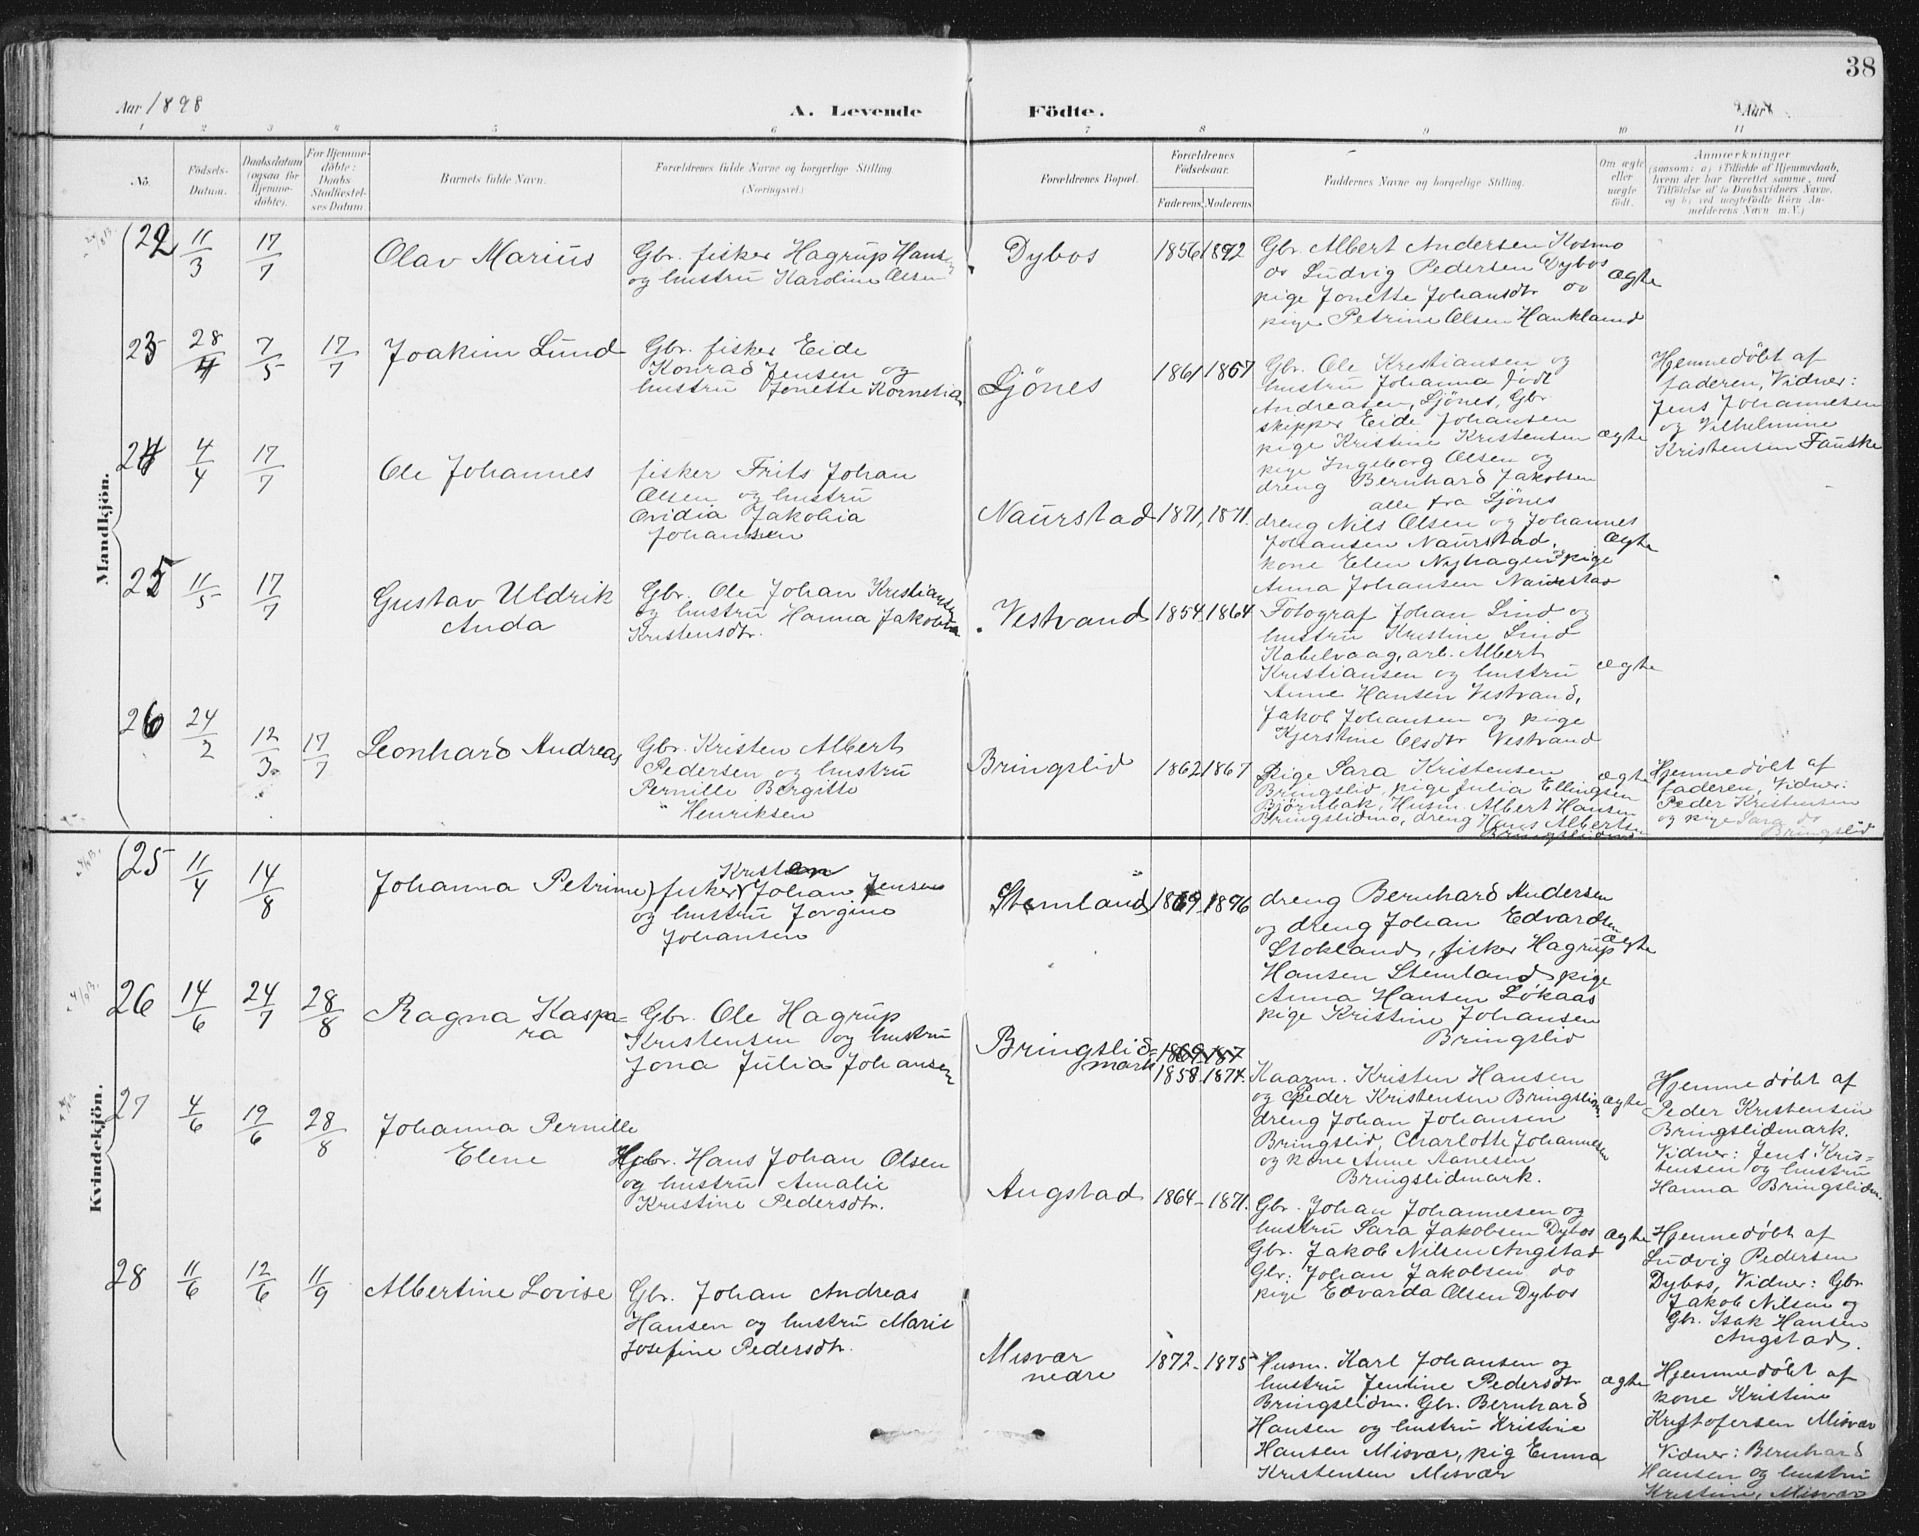 38
Aar 1898
A. Levende Födte.
Aar
1 2 3 4 5 6 7 8 9 10 11
No.
Födsels-
Datum.
Daabsdatum
(ogsaa for
Hjemme-
döbte).
For Hjemme-
döbte:
Daabs
Stadfæstel-
ses Datum.
Barnets fulde Navn.
Forældrenes fulde Navne og borgerlige Stilling
(Næringsvei.)
Forældrenes Bopæl.
Forældrenes
Födselsaar.
Faderens. Moderens.
Faddernes Navne og borgerlige Stilling.
Om ægte
eller
uægte
födt.
Anmærkninger
(saasom: a) i Tilfælde af Hjemmedaab,
hvem der har forrettet samme, med
Tilföielse af to Daabsvidners Navne,
og b) ved uægtefödte Börn An-
melderens Navn m. V.)
Mandkjön.
22 11/3 17/7
Olav Marius
Gbr. fisker Hagrup Hans
og hustru Karoline Olsen
Dybos
1856 1892
Gbr Albert Andersen Kosmo
do Ludvig Pedersen Dybos
pige Jonette Johansdtr
pige Petrine Olsen Haukland
ægte
23 28/4 7/5 17/7
Joakim Lund
Gbr. fisker Eide
Konrad Jensen og
hustru Jonette Kornelia
Ljönes
1861 1867
Gbr. Ole Kristiansen og
hustru Johanna födt
Andreasen, Ljönes, Gbr
skipper Eide Johansen
pige Kristine Kristensen
pige Ingeborg Olsen og
dreng Bernhard Jakobsen
alle fra Ljönes
ægte
Hjemmedöbt af
faderen, Vidner:
Jens Johannesen
og Vilhelmine
Kristensen Fauske
24 4/4 17/7
Ole Johannes
fisker Frits Johan
Olsen og hustru
Ovidia Jakobia
Johansen
Naurstad
1871, 1871.
dreng Nils Olsen og Johannes
Johansen Naurstad,
kone Elen Nyhagen og pige
Anna Johansen Naurstad
ægte
25 11/5 17/7
Gustav Uldrik
Anda
Gbr. Ole Johan Kristiansen
og hustru Hanna Jakobin
Kristensdtr.
Vestvand
1854 1864
Fotograf Johan Lind og
hustru Kristine Lind
Kabelvaag, arb. Albert
Kristiansen og hustru
Anne Hansen Vestvand,
Jakob Johansen og pige
Kjerstine Olsdtr Vestvand
ægte
26 24/2 12/3 17/7
Leonhard Andreas
Gbr. Kristen Albert
Pedersen og hustru
Pernille Bergitte
Henriksen
Bringslid
1862 1867
pige Sara Kristensen
Bringslid, pige Julia Ellingsen
Björnbak, Husm. Albert Hansen
Bringslidmo, dreng Hans Albertsen
Bringslidmo
ægte
Hjemmedöbt af
faderen, Vidner:
Peder Kristensen
og pige Sara do
Bringslid
Kvindekjön.
25 11/4 14/8
Johanna Petrine
Kristen
fisker Johan Jensen
og hustru Jorgine
Johansen
Stemland
1869 1896
dreng Bernhard Andersen
og dreng Johan Edvardsen
Stokland, fisker Hagrup
Hansen Stemland pige
Anna Hansen Lökaas
pige Kristine Johansen
Bringslid
ægte
26 14/6 24/7 28/8
Ragna Kaspa-
ra
Gbr. Ole Hagrup
Kristensen og hustru
Jona Julia Johansen
Bringslid-
mark
1869 187
1858 1874.
Kaarm. Kristen Hansen
og Peder Kristensen Bringslidm
dreng Johan Johansen
Bringslid, Charlotte Johannesen
og kone Anne Aanesen
Bringslidmark.
ægte
Hjemmedöbt af
Peder Kristensen
Bringslidmark.
Vidner: Jens Kris-
tensen og hustru
Hanna Bringslidm.
27 4/6 19/6 28/8
Johanna Pernille
Elene
Gbr. Hans Johan Olsen
og hustru Amalie
Kristine Pedersdtr.
Augstad
1864 - 1871.
Gbr. Johan Johannesen og
hustru Sara Jakobsen Dybos
Gbr. Jakob Nilsen Augstad
Gbr: Johan Jakobsen do
pige Edvarda Olsen Dybos
ægte
Hjemmedöbt af
Ludvig Pedersen
Dybos, Vidner: Gbr
Jakob Nilsen og
Gbr. Isak Hansen
Augstad.
28 11/6 12/6 11/9
Albertine Lovise
Gbr. Johan Andreas
Hansen og hustru Marie
Josefine Pedersdtr.
Misvær
nedre
1872 - 1875
Husm. Karl Johansen og
hustru Jentine Pedersdtr
Bringslidm. Gbr. Bernhard
Hansen og hustru Kristine
Hansen Misvær, pig Emma
Kristensen Misvær
ægte
Hjemmedöbt af
kone Kristine
Kristofersen Misvær
Vidner: Bernhard
Hansen og hustru
Kristine, Misvær